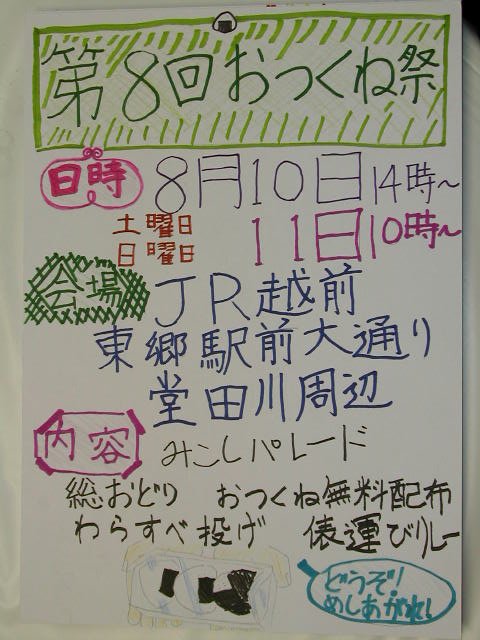 第8回おつくね祭
日時 8月10日 14時～
土曜日
日曜日 11日 10時～
会場 JR越前
東郷駅前大通り
堂田川周辺
内容 みこしパレード
総おどり おつくね無料配布
わらすべ投げ 俵運びリレー
どうぞ!
めしあがれ!